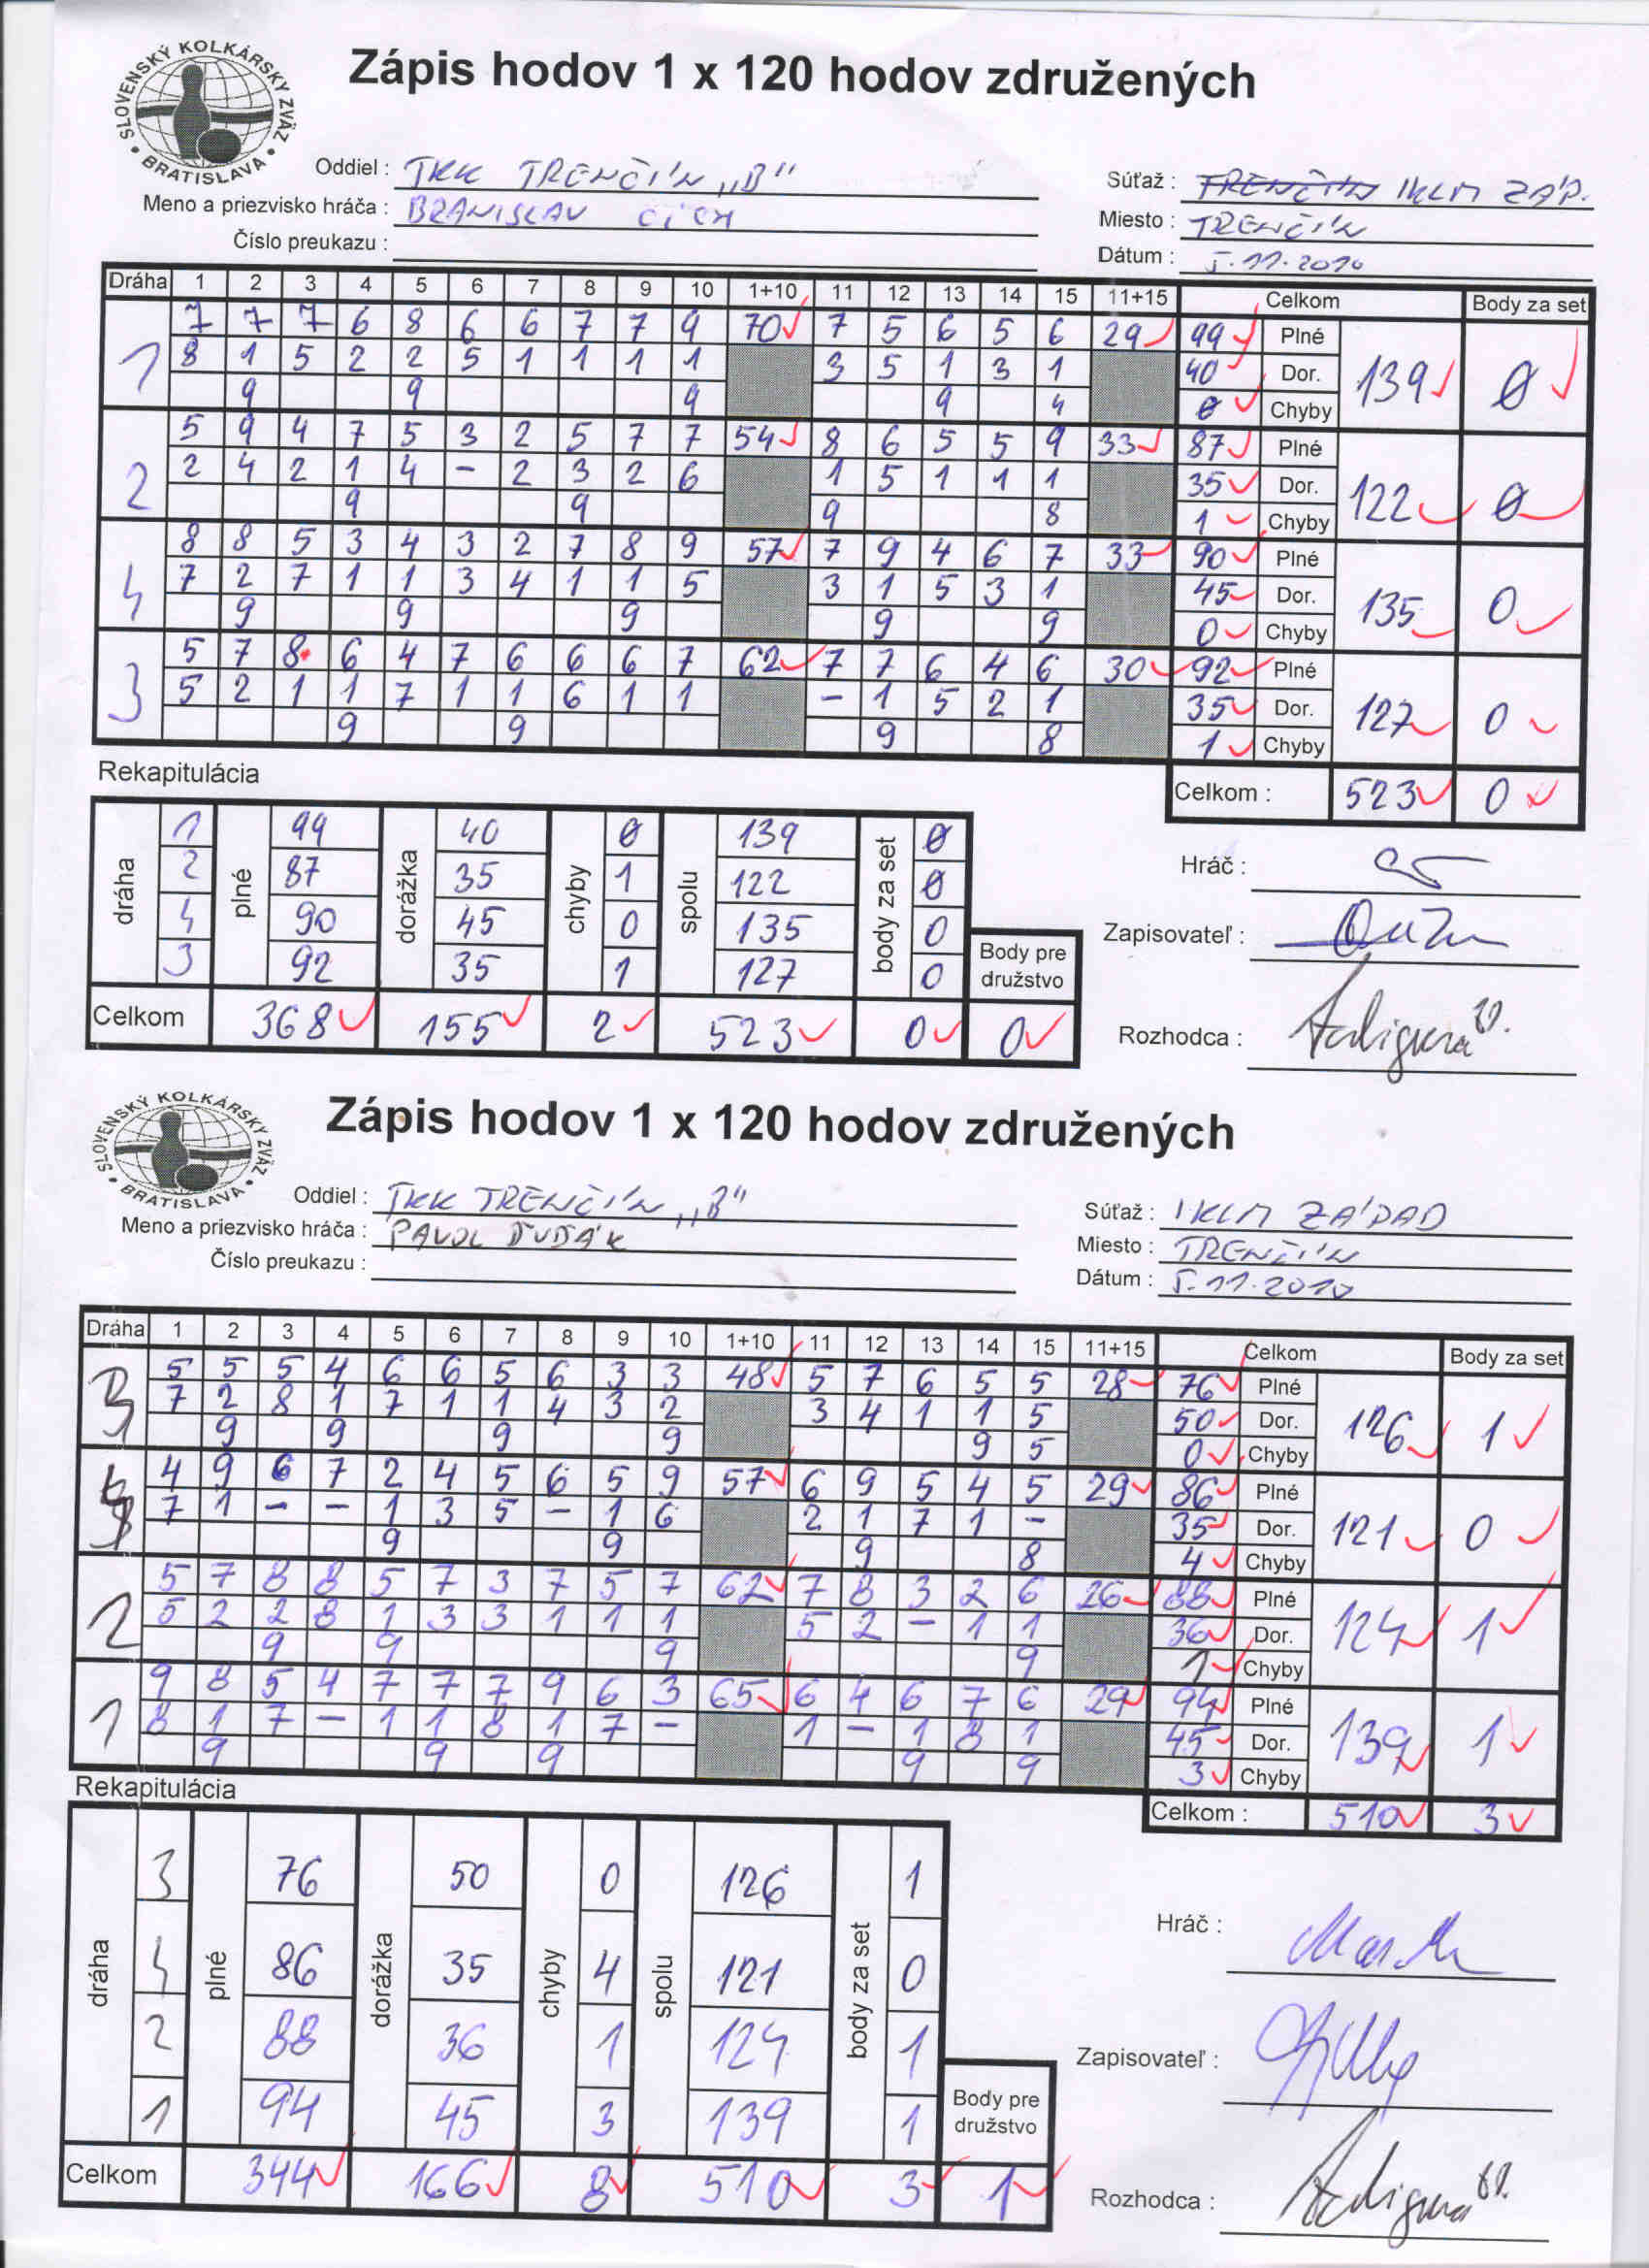 SLOVENSKÝ KOLKÁRSKY ZVÄZ • BRATISLAVA •
Zápis hodov 1 x 120 hodov združených
Oddiel : TKK TRENČÍN „B"
Súťaž : TRENČÍN IKLM ZÁP.
Meno a priezvisko hráča : BRANISLAV CÍCH
Miesto : TRENČÍN
Číslo preukazu :
Dátum : 5.11.2010
Dráha 1 2 3 4 5 6 7 8 9 10 1+10 11 12 13 14 15 11+15 Celkom Body za set
1 7 7 7 6 8 6 6 7 7 9 70 7 5 6 5 6 29 99 Plné 139 0
8 1 5 2 2 5 1 1 1 1 3 5 1 3 1 40 Dor.
9 9 9 9 4 0 Chyby
2 5 9 4 7 5 3 2 5 7 7 54 8 6 5 5 9 33 87 Plné 122 0
2 4 2 1 4 - 2 3 2 6 1 5 1 1 1 35 Dor.
9 9 9 8 1 Chyby
4 8 8 5 3 4 3 2 7 8 9 57 7 9 4 6 7 33 90 Plné 135 0
7 2 7 1 1 3 4 1 1 5 3 1 5 3 1 45 Dor.
9 9 9 9 9 0 Chyby
3 5 7 8 6 4 7 6 6 6 7 62 7 7 6 4 6 30 92 Plné 127 0
5 2 1 1 7 1 1 6 1 1 - 1 5 2 1 35 Dor.
9 9 9 8 1 Chyby
Rekapitulácia
Celkom : 523 0
dráha plné dorážka chyby spolu body za set
1 99 40 0 139 0
2 87 35 1 122 0
4 90 45 0 135 0
3 92 35 1 127 0
Body pre družstvo
Celkom 368 155 2 523 0 0
Hráč :
Zapisovateľ :
Rozhodca :
SLOVENSKÝ KOLKÁRSKY ZVÄZ • BRATISLAVA •
Zápis hodov 1 x 120 hodov združených
Oddiel : TKK TRENČÍN „B"
Súťaž : IKLM ZÁPAD
Meno a priezvisko hráča : PAVOL DUDÁK
Miesto : TRENČÍN
Číslo preukazu :
Dátum : 5.11.2010
Dráha 1 2 3 4 5 6 7 8 9 10 1+10 11 12 13 14 15 11+15 Celkom Body za set
3 5 5 5 4 6 6 5 6 3 3 48 5 7 6 5 5 28 76 Plné 126 1
7 2 8 1 7 1 1 4 3 2 3 4 1 1 5 50 Dor.
9 9 9 9 9 5 0 Chyby
4 4 9 6 7 2 4 5 6 5 9 57 6 9 5 4 5 29 86 Plné 121 0
7 1 - - 1 3 5 - 1 6 2 1 7 1 - 35 Dor.
9 9 9 8 4 Chyby
2 5 7 8 8 5 7 3 7 5 7 62 7 8 3 2 6 26 88 Plné 124 1
5 2 2 8 1 3 3 1 1 1 5 2 - 1 1 36 Dor.
9 9 9 9 1 Chyby
1 9 8 5 4 7 7 7 9 6 3 65 6 4 6 7 6 29 94 Plné 139 1
8 1 7 - 1 1 8 1 7 - 1 - 1 8 1 45 Dor.
9 9 9 9 9 3 Chyby
Rekapitulácia
Celkom : 510 3
dráha plné dorážka chyby spolu body za set
3 76 50 0 126 1
4 86 35 4 121 0
2 88 36 1 124 1
1 94 45 3 139 1
Body pre družstvo
Celkom 344 166 8 510 3 1
Hráč :
Zapisovateľ :
Rozhodca :